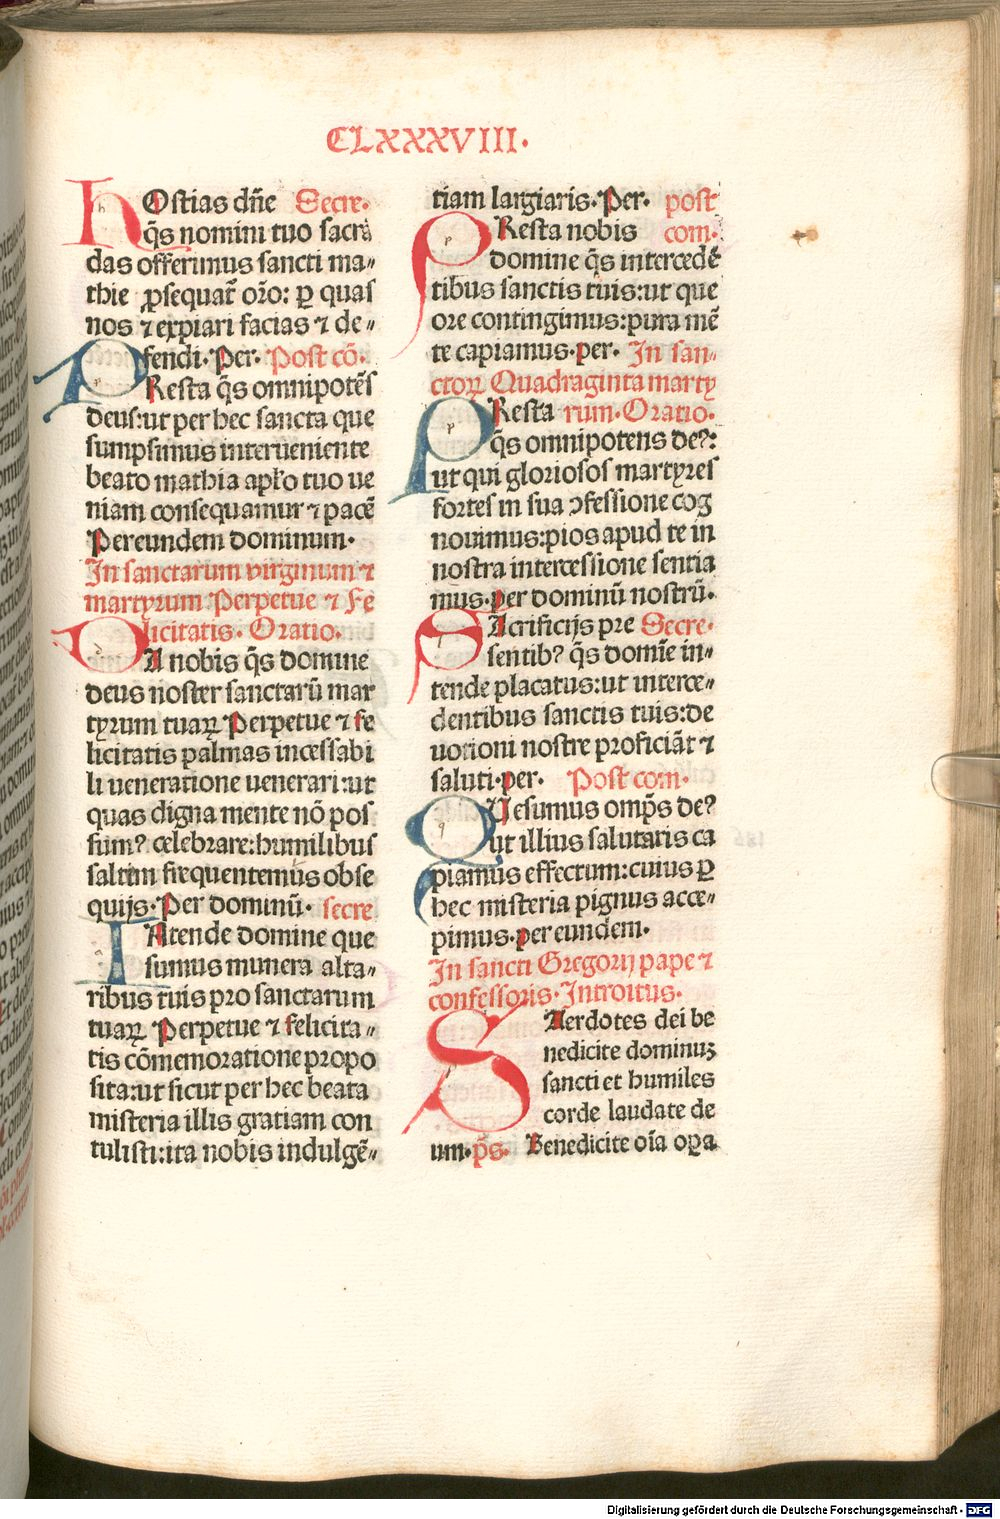 CLXXXVIII.
HOstias dñe Secre.
q̃s nomini tuo sacrã
das offerimus sancti ma⸗
thie ꝓsequat᷑ or̃o: ꝑ quas
nos ⁊ expiari facias ⁊ de⸗
fendi. Per. Post cõ.
PResta q̃s omnipotẽs
deus:ut per hec sancta que
sumpsimus interueniente
beato mathia apl̃o tuo ue
niam consequamur ⁊ pacẽ
Per eundem dominum.
In sanctarum virginum ⁊
martyrum Perpetue ⁊ Fe
licitatis. Oratio.
DA nobis q̃s domine
deus noster sanctarũ mar
tyrum tuaꝝ Perpetue ⁊ fe
licitatis palmas incessabi
li ueneratione uenerari:ut
quas digna mente nõ pos
sumꝰ celebrare:humilibus
saltem frequentemus obse
quijs. Per dominũ. secre
INtende domine que
sumus munera alta⸗
ribus tuis pro sanctarum
tuaꝝ Perpetue ⁊ felicita⸗
tis cõmemoratione propo
sita:ut sicut per hec beata
misteria illis gratiam con
tulisti:ita nobis indulgẽ⸗
tiam largiaris. Per. post
PResta nobis com.
domine q̃s intercedẽ
tibus sanctis tuis:ut que
ore contingimus:pura mẽ
te capiamus. per. In san⸗
ctoꝝ Quadraginta martỹ
PResta rum. Oratio.
q̃s omnipotens deꝰ:
ut qui gloriosos martyres
fortes in sua ꝯfessione cog
nouimus:pios apud te in
nostra intercessione sentia
mus. per dominũ nostrũ.
SAcrificijs pre Secre.
sentibꝰ q̃s domĩe in⸗
tende placatus:ut interce⸗
dentibus sanctis tuis:de
uotioni nostre proficiãt ⁊
saluti. per. Post com.
QUesumus omp̃s deꝰ
ut illius salutaris ca
piamus effectum:cuius ꝑ
hec misteria pignus acce⸗
pimus. per eundem.
In sancti Gregorij pape ⁊
confessoris. Introitus.
SAcerdotes dei be
nedicite dominuꝫ
sancti et humiles
corde laudate de
um. p̃s. Benedicite oĩa oꝑa
Digitalisierung gefördert durch die Deutsche Forschungsgemeinschaft - DFG